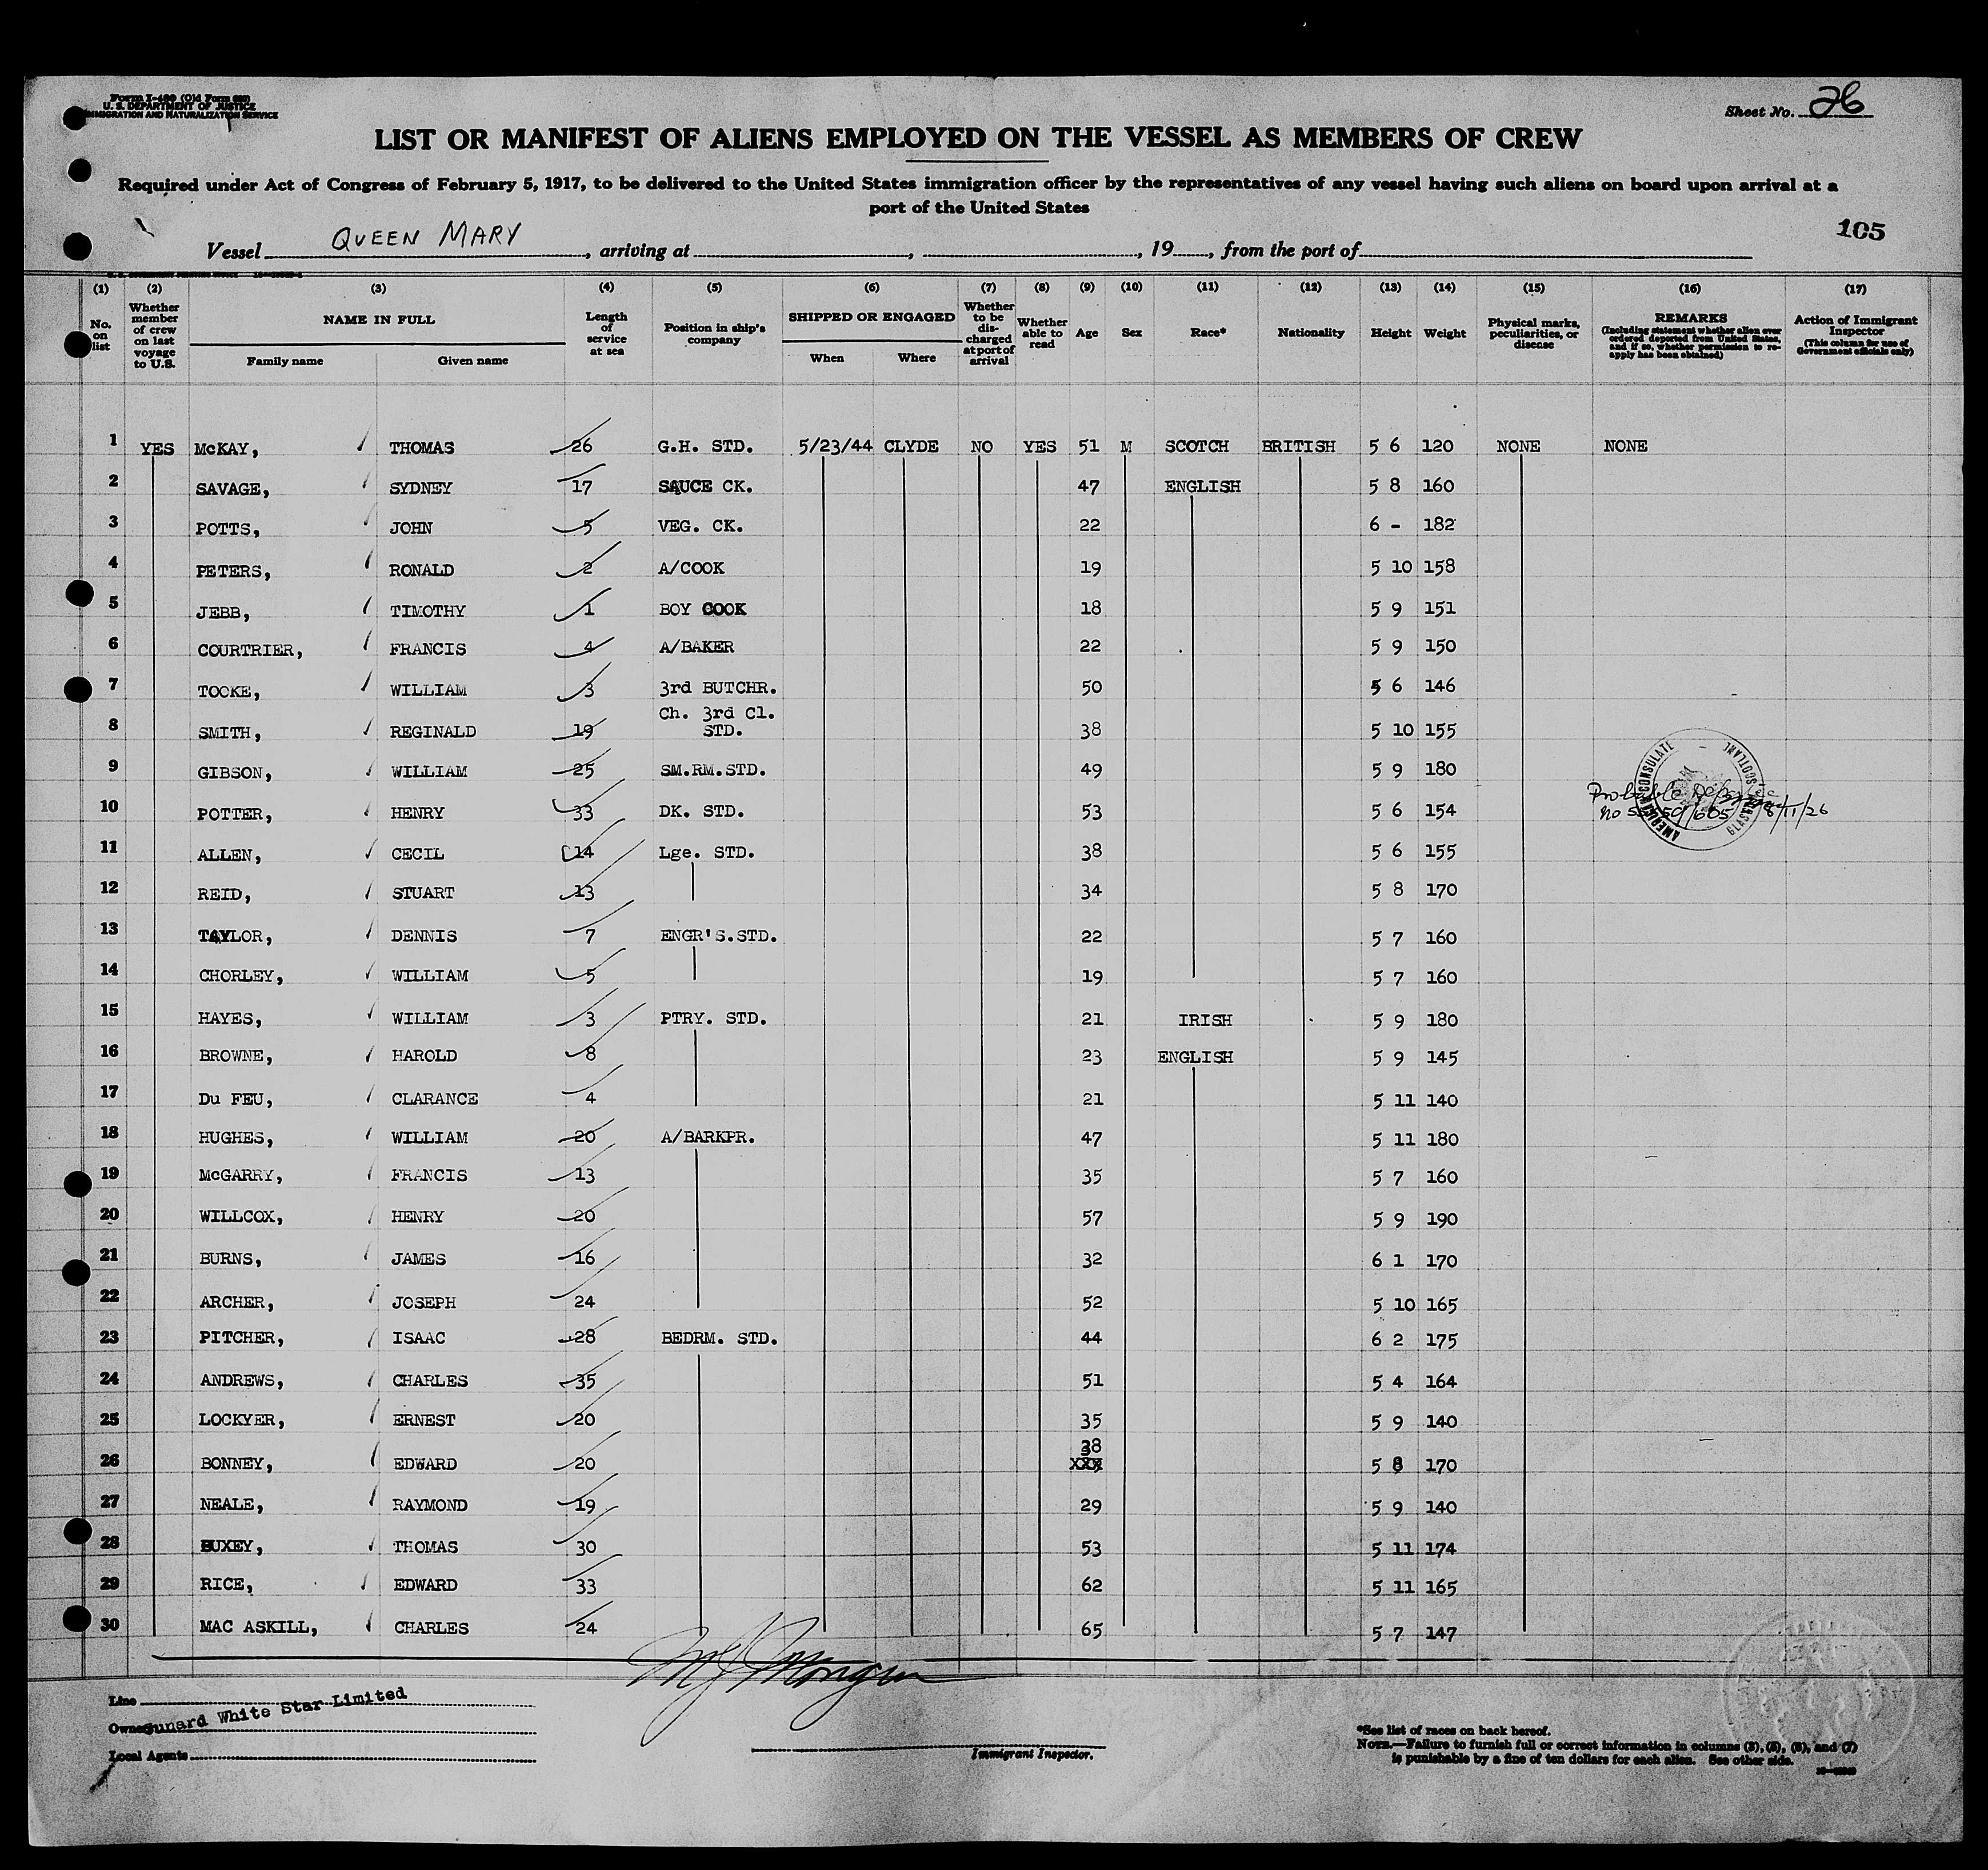 Form I-489 (Old Form 689)
U. S. DEPARTMENT OF JUSTICE
IMMIGRATION AND NATURALIZATION SERVICE
Sheet No. 26
LIST OR MANIFEST OF ALIENS EMPLOYED ON THE VESSEL AS MEMBERS OF CREW
Required under Act of Congress of February 5, 1917, to be delivered to the United States immigration officer by the representatives of any vessel having such aliens on board upon arrival at a
port of the United States
105
Vessel QUEEN MARY, arriving at , , 19 , from the port of
(1) (2) (3) (4) (5) (6) (7) (8) (9) (10) (11) (12) (13) (14) (15) (16) (17)
No. on list
Whether member of crew on last voyage to U.S.
NAME IN FULL
Family name Given name
Length of service at sea
Position in ship's company
SHIPPED OR ENGAGED
When Where
Whether to be discharged at port of arrival
Whether able to read
Age Sex Race* Nationality Height Weight
Physical marks, peculiarities, or disease
REMARKS
(Including statement whether alien ever ordered deported from United States, and if so, whether permission to reapply has been obtained)
Action of Immigrant Inspector
(This column for use of Government officials only)
1 YES McKAY, THOMAS 26 G.H. STD. 5/23/44 CLYDE NO YES 51 M SCOTCH BRITISH 5 6 120 NONE NONE
2 SAVAGE, SYDNEY 17 SAUCE CK. 47 ENGLISH 5 8 160
3 POTTS, JOHN 5 VEG. CK. 22 6 - 182
4 PETERS, RONALD 2 A/COOK 19 5 10 158
5 JEBB, TIMOTHY 1 BOY COOK 18 5 9 151
6 COURTRIER, FRANCIS 4 A/BAKER 22 5 9 150
7 TOOKE, WILLIAM 3 3rd BUTCHR. 50 5 6 146
8 SMITH, REGINALD 19 Ch. 3rd Cl. STD. 38 5 10 155
9 GIBSON, WILLIAM 25 SM.RM.STD. 49 5 9 180
10 POTTER, HENRY 33 DK. STD. 53 5 6 154 Probable
AMERICAN CONSULATE GLASGOW SCOTLAND
11 ALLEN, CECIL 14 Lge. STD. 38 5 6 155
12 REID, STUART 13 34 5 8 170
13 TAYLOR, DENNIS 7 ENGR'S.STD. 22 5 7 160
14 CHORLEY, WILLIAM 5 19 5 7 160
15 HAYES, WILLIAM 3 PTRY. STD. 21 IRISH 5 9 180
16 BROWNE, HAROLD 8 23 ENGLISH 5 9 145
17 Du FEU, CLARANCE 4 21 5 11 140
18 HUGHES, WILLIAM 20 A/BARKPR. 47 5 11 180
19 McGARRY, FRANCIS 13 35 5 7 160
20 WILLCOX, HENRY 20 57 5 9 190
21 BURNS, JAMES 16 32 6 1 170
22 ARCHER, JOSEPH 24 52 5 10 165
23 PITCHER, ISAAC 28 BEDRM. STD. 44 6 2 175
24 ANDREWS, CHARLES 35 51 5 4 164
25 LOCKYER, ERNEST 20 35 5 9 140
26 BONNEY, EDWARD 20 38 XXX 5 8 170
27 NEALE, RAYMOND 19 29 5 9 140
28 BUXEY, THOMAS 30 53 5 11 174
29 RICE, EDWARD 33 62 5 11 165
30 MAC ASKILL, CHARLES 24 65 5 7 147
Line
Owner Cunard White Star Limited
Local Agents
Immigrant Inspector.
*See list of races on back hereof.
NOTE.—Failure to furnish full or correct information in columns (3), (5), (6), and (7)
is punishable by a fine of ten dollars for each alien. See other side.